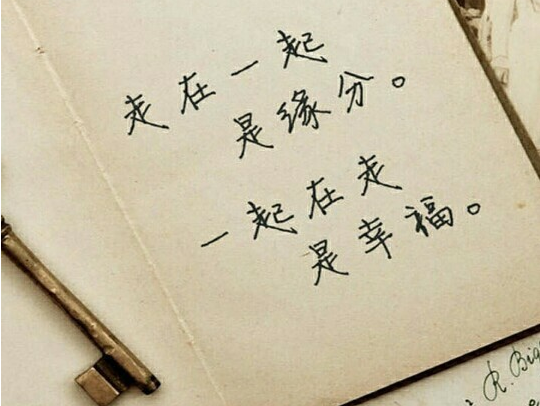 走在一起
是缘分。
一起在走
是幸福。
R. Big